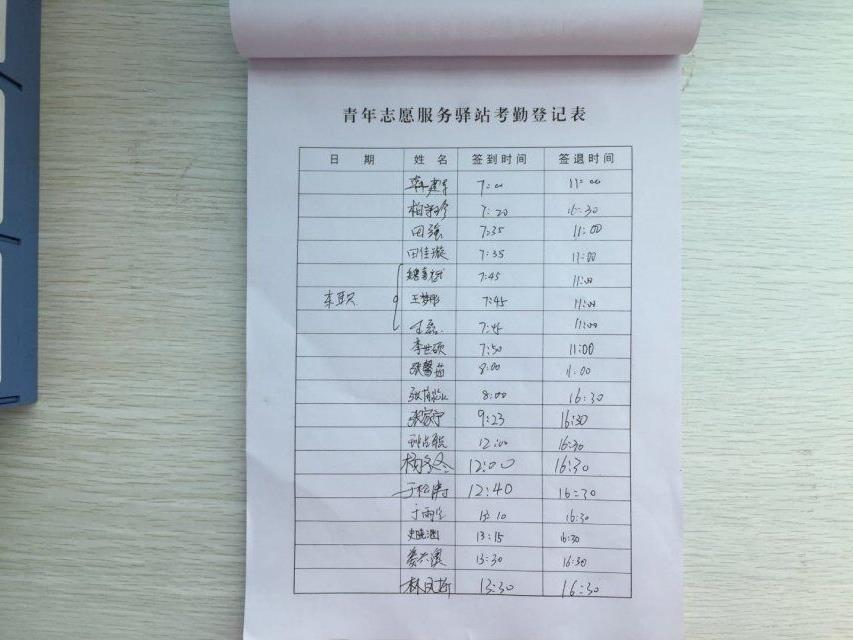 青年志愿服务驿站考勤登记表
日 期 姓 名 签到时间 签退时间
7:00 11:00
7:20 16:30
田强 7:35 11:00
田佳璇 7:35 11:00
7:45 11:00
王梦彤 7:45 11:00
王磊 7:45 11:00
李世硕 7:50 11:00
张馨苗 8:00 11:00
8:00 16:30
张家宁 9:23 16:30
12:00 16:30
12:00 16:30
于松涛 12:40 16:30
于雨生 13:10 16:30
史晓澍 13:15 16:30
13:30 16:30
林凤娇 13:30 16:30